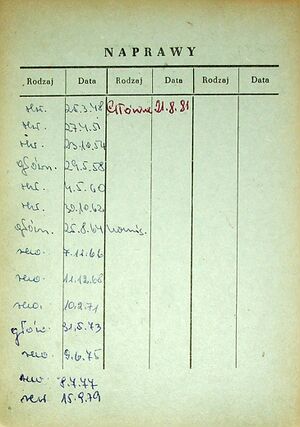 NAPRAWY
Rodzaj Data Rodzaj Data Rodzaj Data
rew. 25.3.48 Główna 21.8.81
rew. 27.4.51
rew. 23.10.54
główn. 29.5.58
rew. 4.5.60
rew. 30.10.62
główn. 25.8.64
rewo. 7.12.66
rewo. 11.12.68
rewo. 10.2.71
głów. 31.5.73
rewo. 9.6.75
rew. 8.7.77
rew. 15.9.79